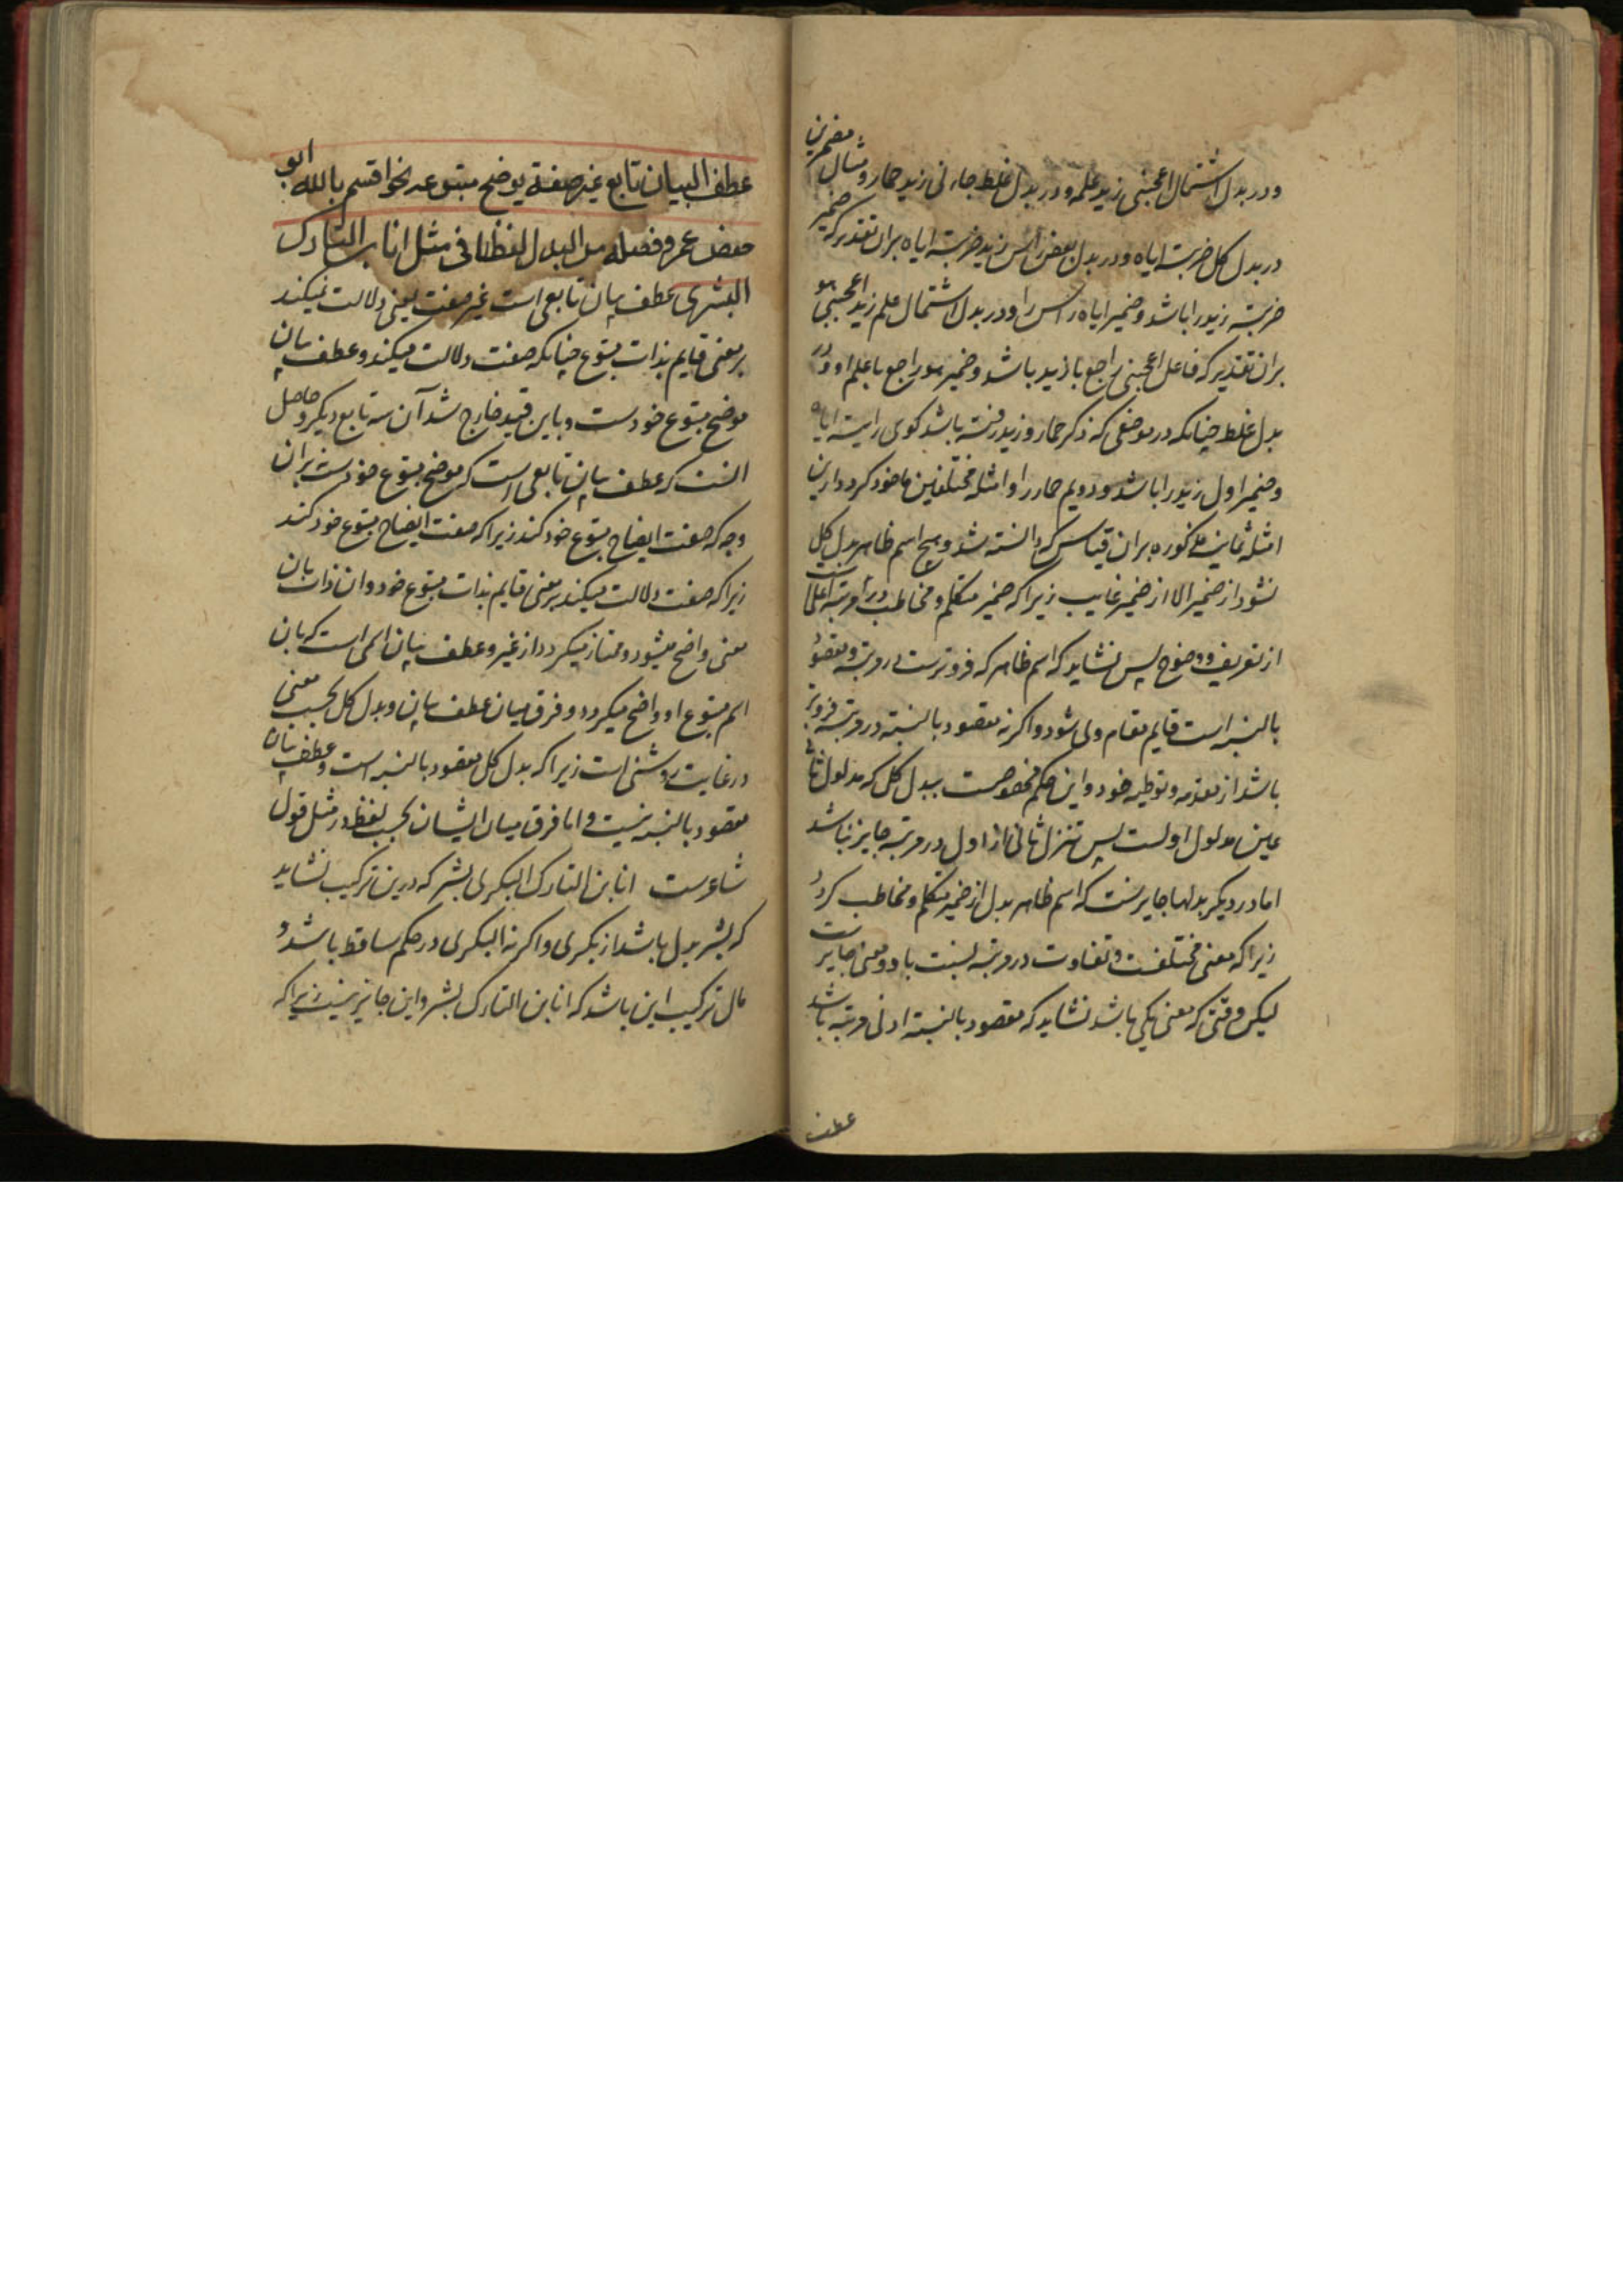 ودر بدل اشتمال اعجبنی زید علمه ودر بدل غلط جاءنی زید حمار ومثال مضمرین
در بدل کل ضربته ایاه ودر بدل بعض راس زید ضربته ایاه بران تقدیر که ضمیر
ضربته زید را باشد وضمیر ایاه راس را ودر بدل اشتمال علم زید اعجبنی هو
بران تقدیر که فاعل اعجبنی راجع با زید باشد وضمیر هو راجع با علم او ودر
بدل غلط چنانکه در موضعی که ذکر حمار وزید رفته باشد کوی رایته ایاه
وضمیر اول زید را باشد ودویم حمار را وامثله مختلفین ماخوذ کردد ازین
امثله ثمانیه مذکوره بران قیاس که دانسته شد وهیچ اسم ظاهر بدل کل
نشود از ضمیر الا از ضمیر غایب زیرا که ضمیر متکلم ومخاطب در مرتبه اعلی است
از تعریف ووضوح پس نشاید که اسم ظاهر که فروترست در مرتبه ومقصود
بالنسبه است قایم مقام وی شود واکر نه مقصود بالنسبه در مرتبه فروتر
باشد از مقدمه وتوطیه خود واین حکم مخصوصست ببدل کل که مدلول ثانی
عین مدلول اولست پس تنزل ثانی از اول در مرتبه جایز نباشد
اما در دیکر بدلها جایزست که اسم ظاهر بدل از ضمیر متکلم ومخاطب کردد
زیرا که معنی مختلفست وتفاوت در مرتبه نسبت با دو معنی جایز است
لیکن وقتی که معنی یکی باشد نشاید که مقصود بالنسبه ادنی مرتبه باشد
عطف
عطف البیان تابع غیر صفة یوضح متبوعه نحو اقسم بالله ابو
حفص عمر وفصله من البدل لفظا فی مثل انا ابن التارک
البشری عطف بیان تابعی است غیر صفت یعنی دلالت نمیکند
بر معنی قایم بذات متبوع چنانکه صفت دلالت میکند وعطف بیان
موضح متبوع خودست وباین قید خارج شد آن سه تابع دیکر وحاصل
انست که عطف بیان تابعی است که موضح متبوع خودست نه بران
وجه که صفت ایضاح متبوع خود کند زیرا که صفت ایضاح متبوع خود کند
زیرا که صفت دلالت میکند بر معنی قایم بذات متبوع خود وان ذات بان
معنی واضح میشود وممتاز میکردد از غیر وعطف بیان اسمی است که بان
اسم متبوع او واضح میکردد وفرق میان عطف بیان وبدل کل بحسب معنی
در غایت روشنی است زیرا که بدل کل مقصود بالنسبه است وعطف بیان
مقصود بالنسبه نیست واما فرق میان ایشان بحسب لفظ در مثل قول
شاعرست انا ابن التارک البکری بشر که درین ترکیب نشاید
که بشر بدل باشد از بکری واکر نه البکری در حکم ساقط باشد و
مال ترکیب این باشد که انا ابن التارک بشر واین جایز نیست زیرا که